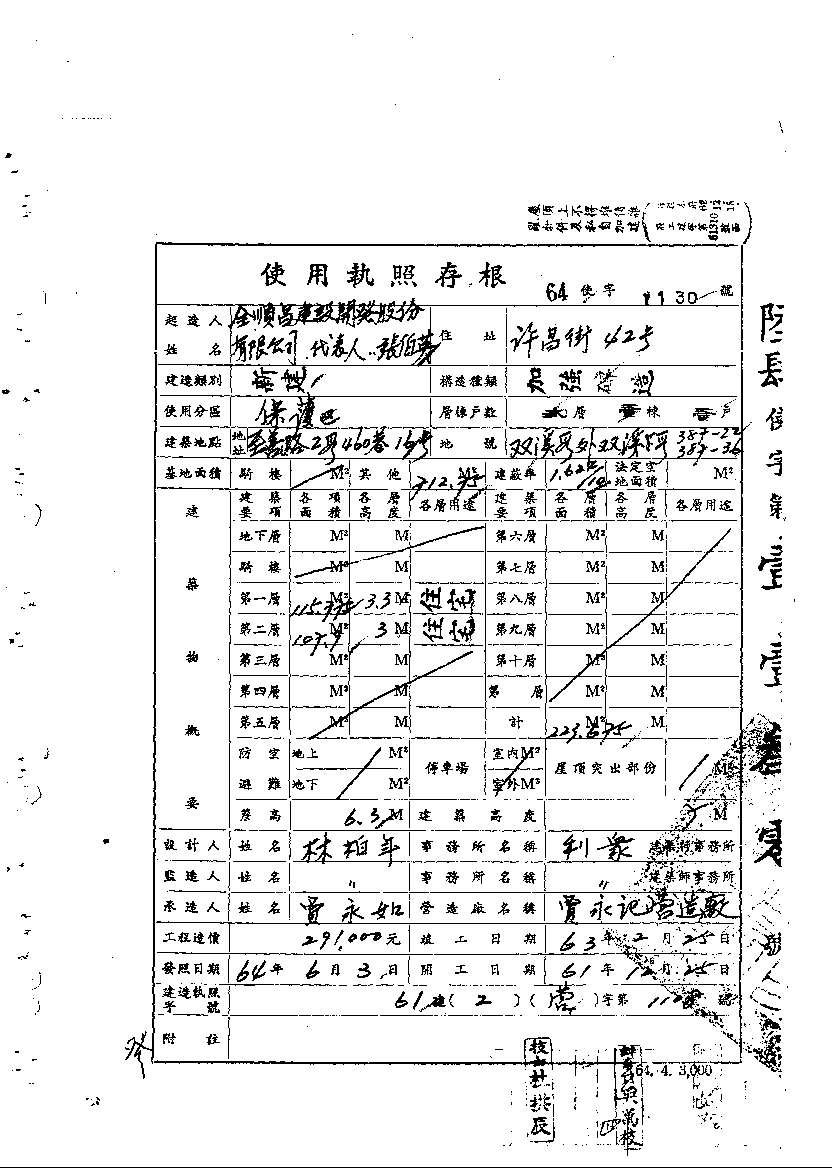 使用執照存根
64 使字 1130 號
起造人姓名 金順昌建設開發股份有限公司 代表人 張伯 住址 許昌街42号
建造類別 新建 構造種類 加強磚造
使用分區 保護 層棟戶數 層 棟 戶
建築地點 地址 至善路2段460巷16号 地號 双溪段外双溪小段 387-22 387-36
基地面積 騎樓 M² 其他 712.75 M² 建蔽率 法定空地面積 M²
建築物概要 建築要項 各項面積 各層高度 各層用途 建築要項 各層面積 各層高度 各層用途
地下層 M² M 第六層 M² M
騎樓 M² M 第七層 M² M
第一層 115.775 M² 3.3 M 住宅 第八層 M² M
第二層 107.9 M² 3 M 住宅 第九層 M² M
第三層 M² M 第十層 M² M
第四層 M² M 第 層 M² M
第五層 M² M 計 223.675 M² M
防空避難 地上 M² 停車場 室內M² 屋頂突出部份 M²
地下 M² 室外M²
簷高 6.3 M 建築高度 M
設計人 姓名 林柏年 事務所名稱 利眾 建築師事務所
監造人 姓名 〃 事務所名稱 〃 建築師事務所
承造人 姓名 賈永如 營造廠名稱 賈永記營造廠
工程造價 291,000元 竣工日期 63年2月25日
發照日期 64年6月3日 開工日期 61年12月25日
建造執照字號 61建(2)( )字第 號
附註
64.4.3,000